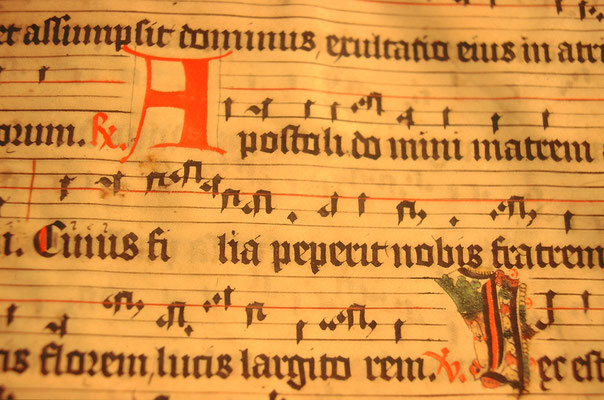 et assumpsit dominus, exultatio eius in atri
orum. R. Apostoli domini matrem
i. Cuius filia peperit nobis fratrem
is florem, lucis largitorem. V. Hec est